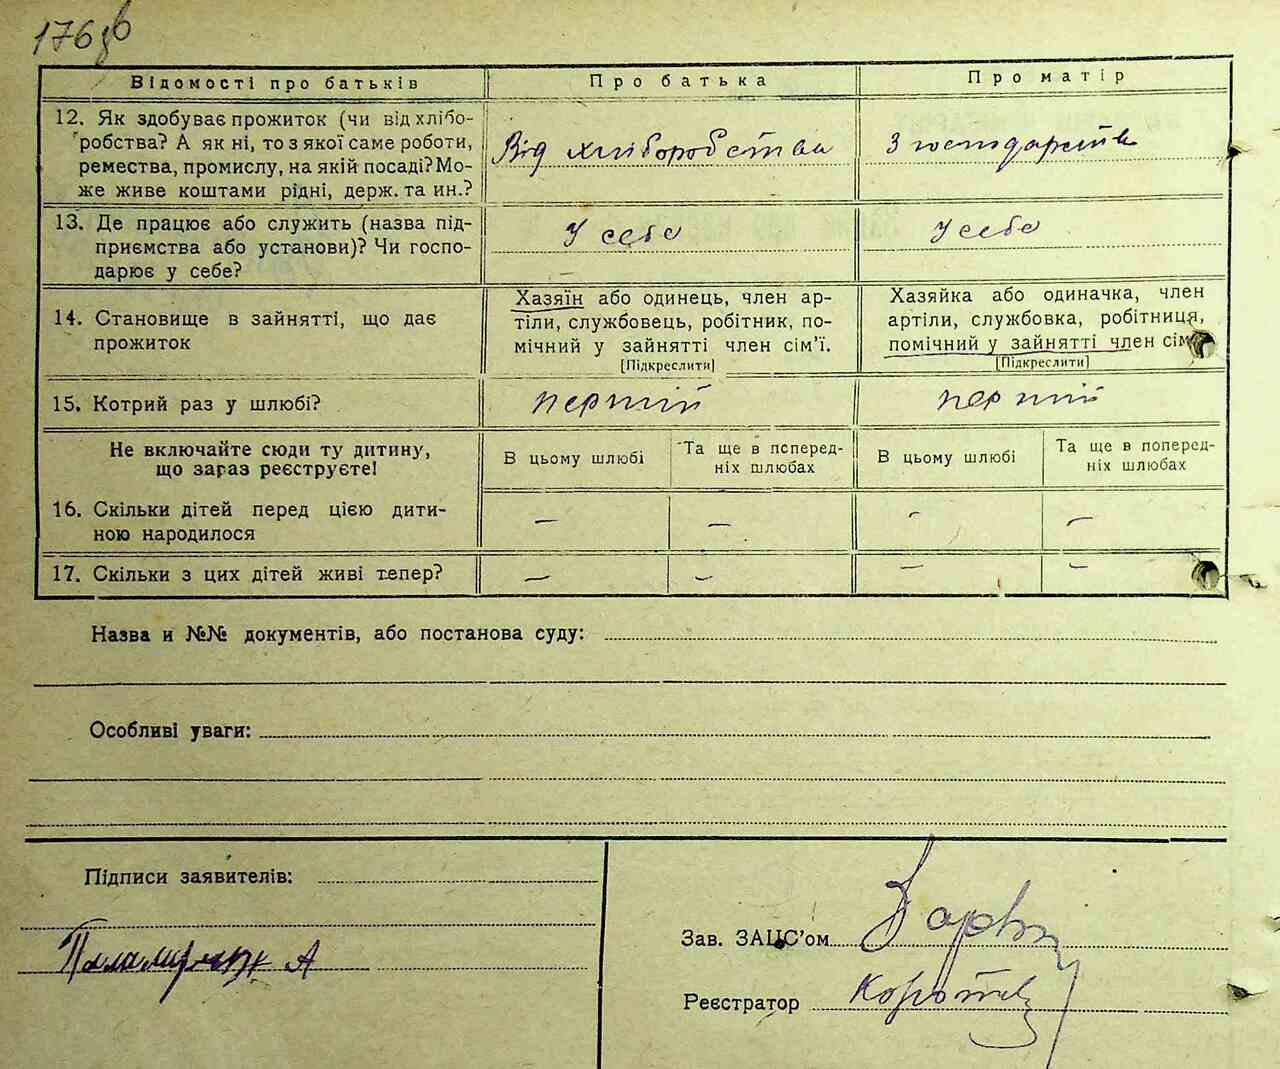 176 зв
Відомості про батьків
Про батька
Про матір
12. Як здобуває прожиток (чи від хлібо-
робства? А як ні, то з якої саме роботи,
ремества, промислу, на якій посаді? Мо-
же живе коштами рідні, держ. та ин.?
Від хліборобства
З господарства
13. Де працює або служить (назва під-
приємства або установи)? Чи госпо-
дарює у себе?
У себе
У себе
14. Становище в зайнятті, що дає
прожиток
Хазяїн або одинець, член ар-
тіли, службовець, робітник, по-
мічний у зайнятті член сім'ї.
[Підкреслити]
Хазяйка або одиначка, член
артіли, службовка, робітниця,
помічний у зайнятті член сім
[Підкреслити]
15. Котрий раз у шлюбі?
перший
перший
Не включайте сюди ту дитину,
що зараз реєструєте!
В цьому шлюбі
Та ще в поперед-
ніх шлюбах
В цьому шлюбі
Та ще в поперед-
ніх шлюбах
16. Скільки дітей перед цією дити-
ною народилося
— — — —
17. Скільки з цих дітей живі тепер?
— — — —
Назва и №№ документів, або постанова суду:
Особливі уваги:
Підписи заявителів:
Паламарчук А
Зав. ЗАЦС'ом
Реєстратор